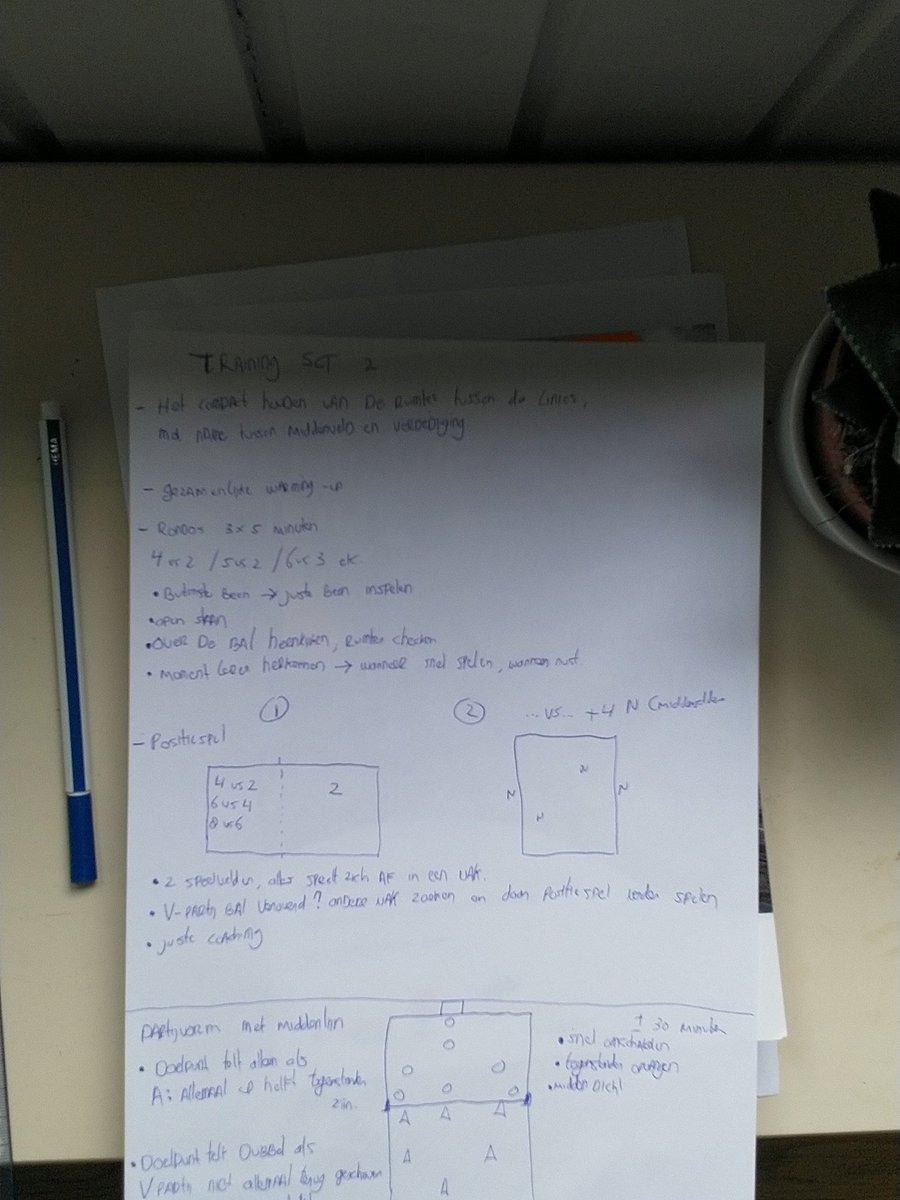 TRAINING SET 2
- Het COMPACT houden VAN De Ruimtes tussen de Linies,
mn name tussen Middenveld en VERDEDIGING
- gezamenlijke warming-up
- Rondos 3x5 minuten
4 vs 2 / 5 vs 2 / 6 vs 3 etc.
• Buitenste Been → juiste Been inspelen
• open staan
• OVER De BAl heenkijken, Ruimtes checken
• Moment leren herkennen → wanneer snel spelen, wanneer rust.
① ② ... vs... +4 N (middenvelders
- Positiespel
4 vs 2
6 vs 4
8 vs 6
2
N
N
N
N
• 2 speelvelden, alles speelt zich AF in een VAK.
• V-partij BAl veroverd? andere VAK zoeken en daar Positiespel verder spelen
• juiste coaching
PARtijvorm met middenlijn
± 30 minuten
• Doelpunt telt alleen als
A: Allemaal op helft tegenstander
zijn.
• snel omschakelen
• tegenstander opvangen
• midden Dicht
• Doelpunt telt DUBBel als
V PARtij niet allemaal terug geschoven
HEMA